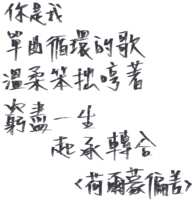 你是我
單曲循環的歌
溫柔笨拙哼著
窮盡一生
起承轉合
<荷爾蒙偏差>